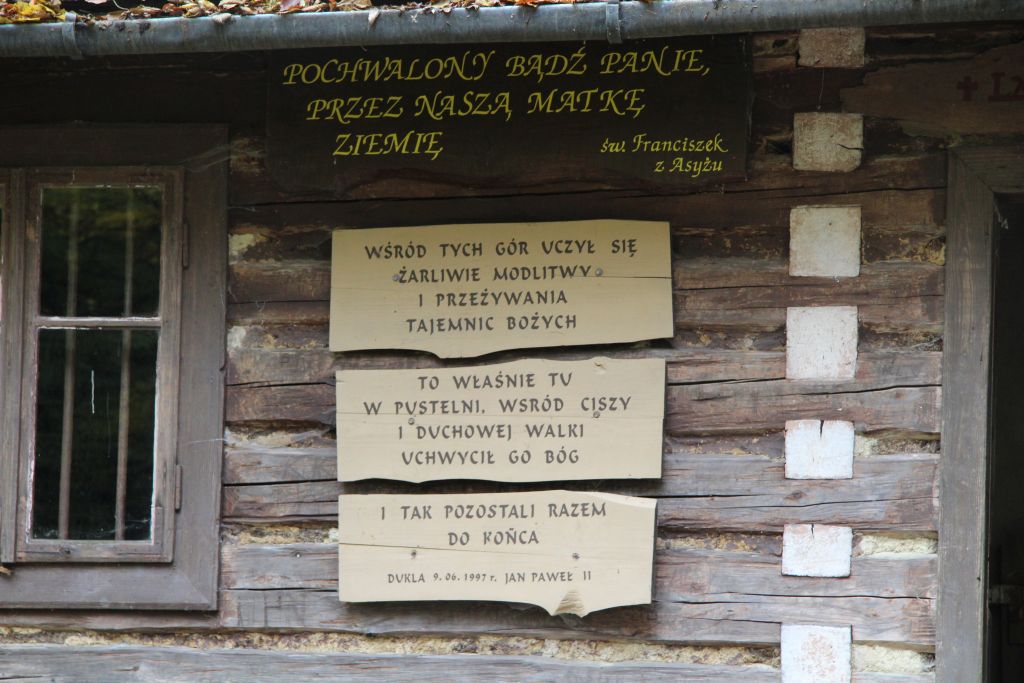 POCHWALONY BĄDŹ PANIE,
PRZEZ NASZĄ MATKĘ
ZIEMIĘ
św. Franciszek
z Asyżu
WŚRÓD TYCH GÓR UCZYŁ SIĘ
ŻARLIWIE MODLITWY
I PRZEŻYWANIA
TAJEMNIC BOŻYCH
TO WŁAŚNIE TU
W PUSTELNI, WSRÓD CISZY
I DUCHOWEJ WALKI
UCHWYCIŁ GO BÓG
I TAK POZOSTALI RAZEM
DO KOŃCA
DUKLA 9.06.1997 r. JAN PAWEŁ II